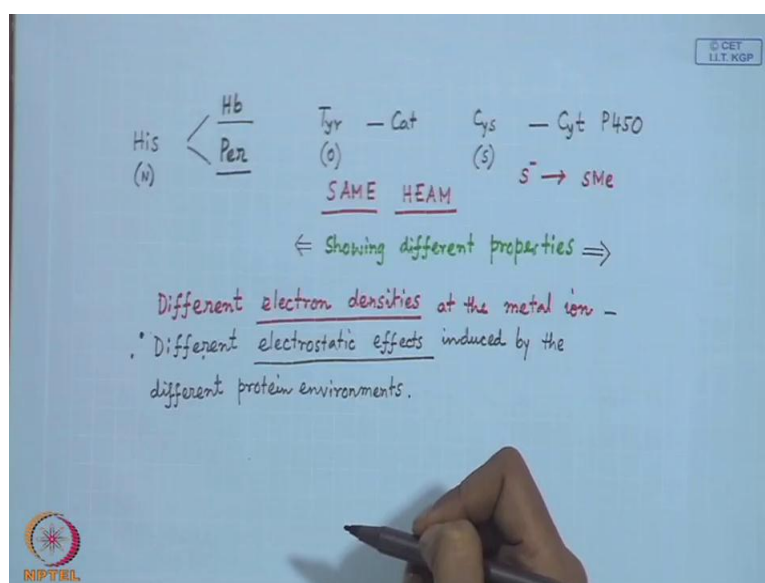 © CET
I.I.T. KGP
Hb
His
Per
(N)
Tyr — Cat
(O)
Cys — Cyt P450
(S)
S⁻ → SMe
SAME HEAM
⇐ Showing different properties ⇒
Different electron densities at the metal ion –
Different electrostatic effects induced by the
different protein environments.
NPTEL